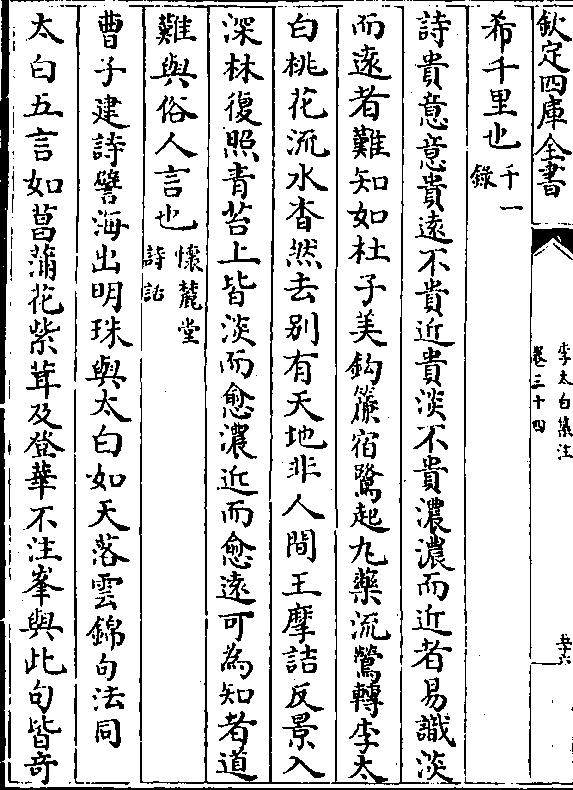 欽定四庫全書
李太白集注
卷三十四
希千里也千一
錄
詩貴意意貴遠不貴近貴淡不貴濃濃而近者易識淡
而遠者難知如杜子美鈎簾宿鷺起丸藥流鶯轉李太
白桃花流水杳然去别有天地非人間王摩詰反景入
深林復照青苔上皆淡而愈濃近而愈遠可為知者道
難與俗人言也懷麓堂
詩話
曹子建詩譬海出明珠與太白如天落雲錦句法同
太白五言如菖蒲花紫茸及登華不注峯與此句皆奇